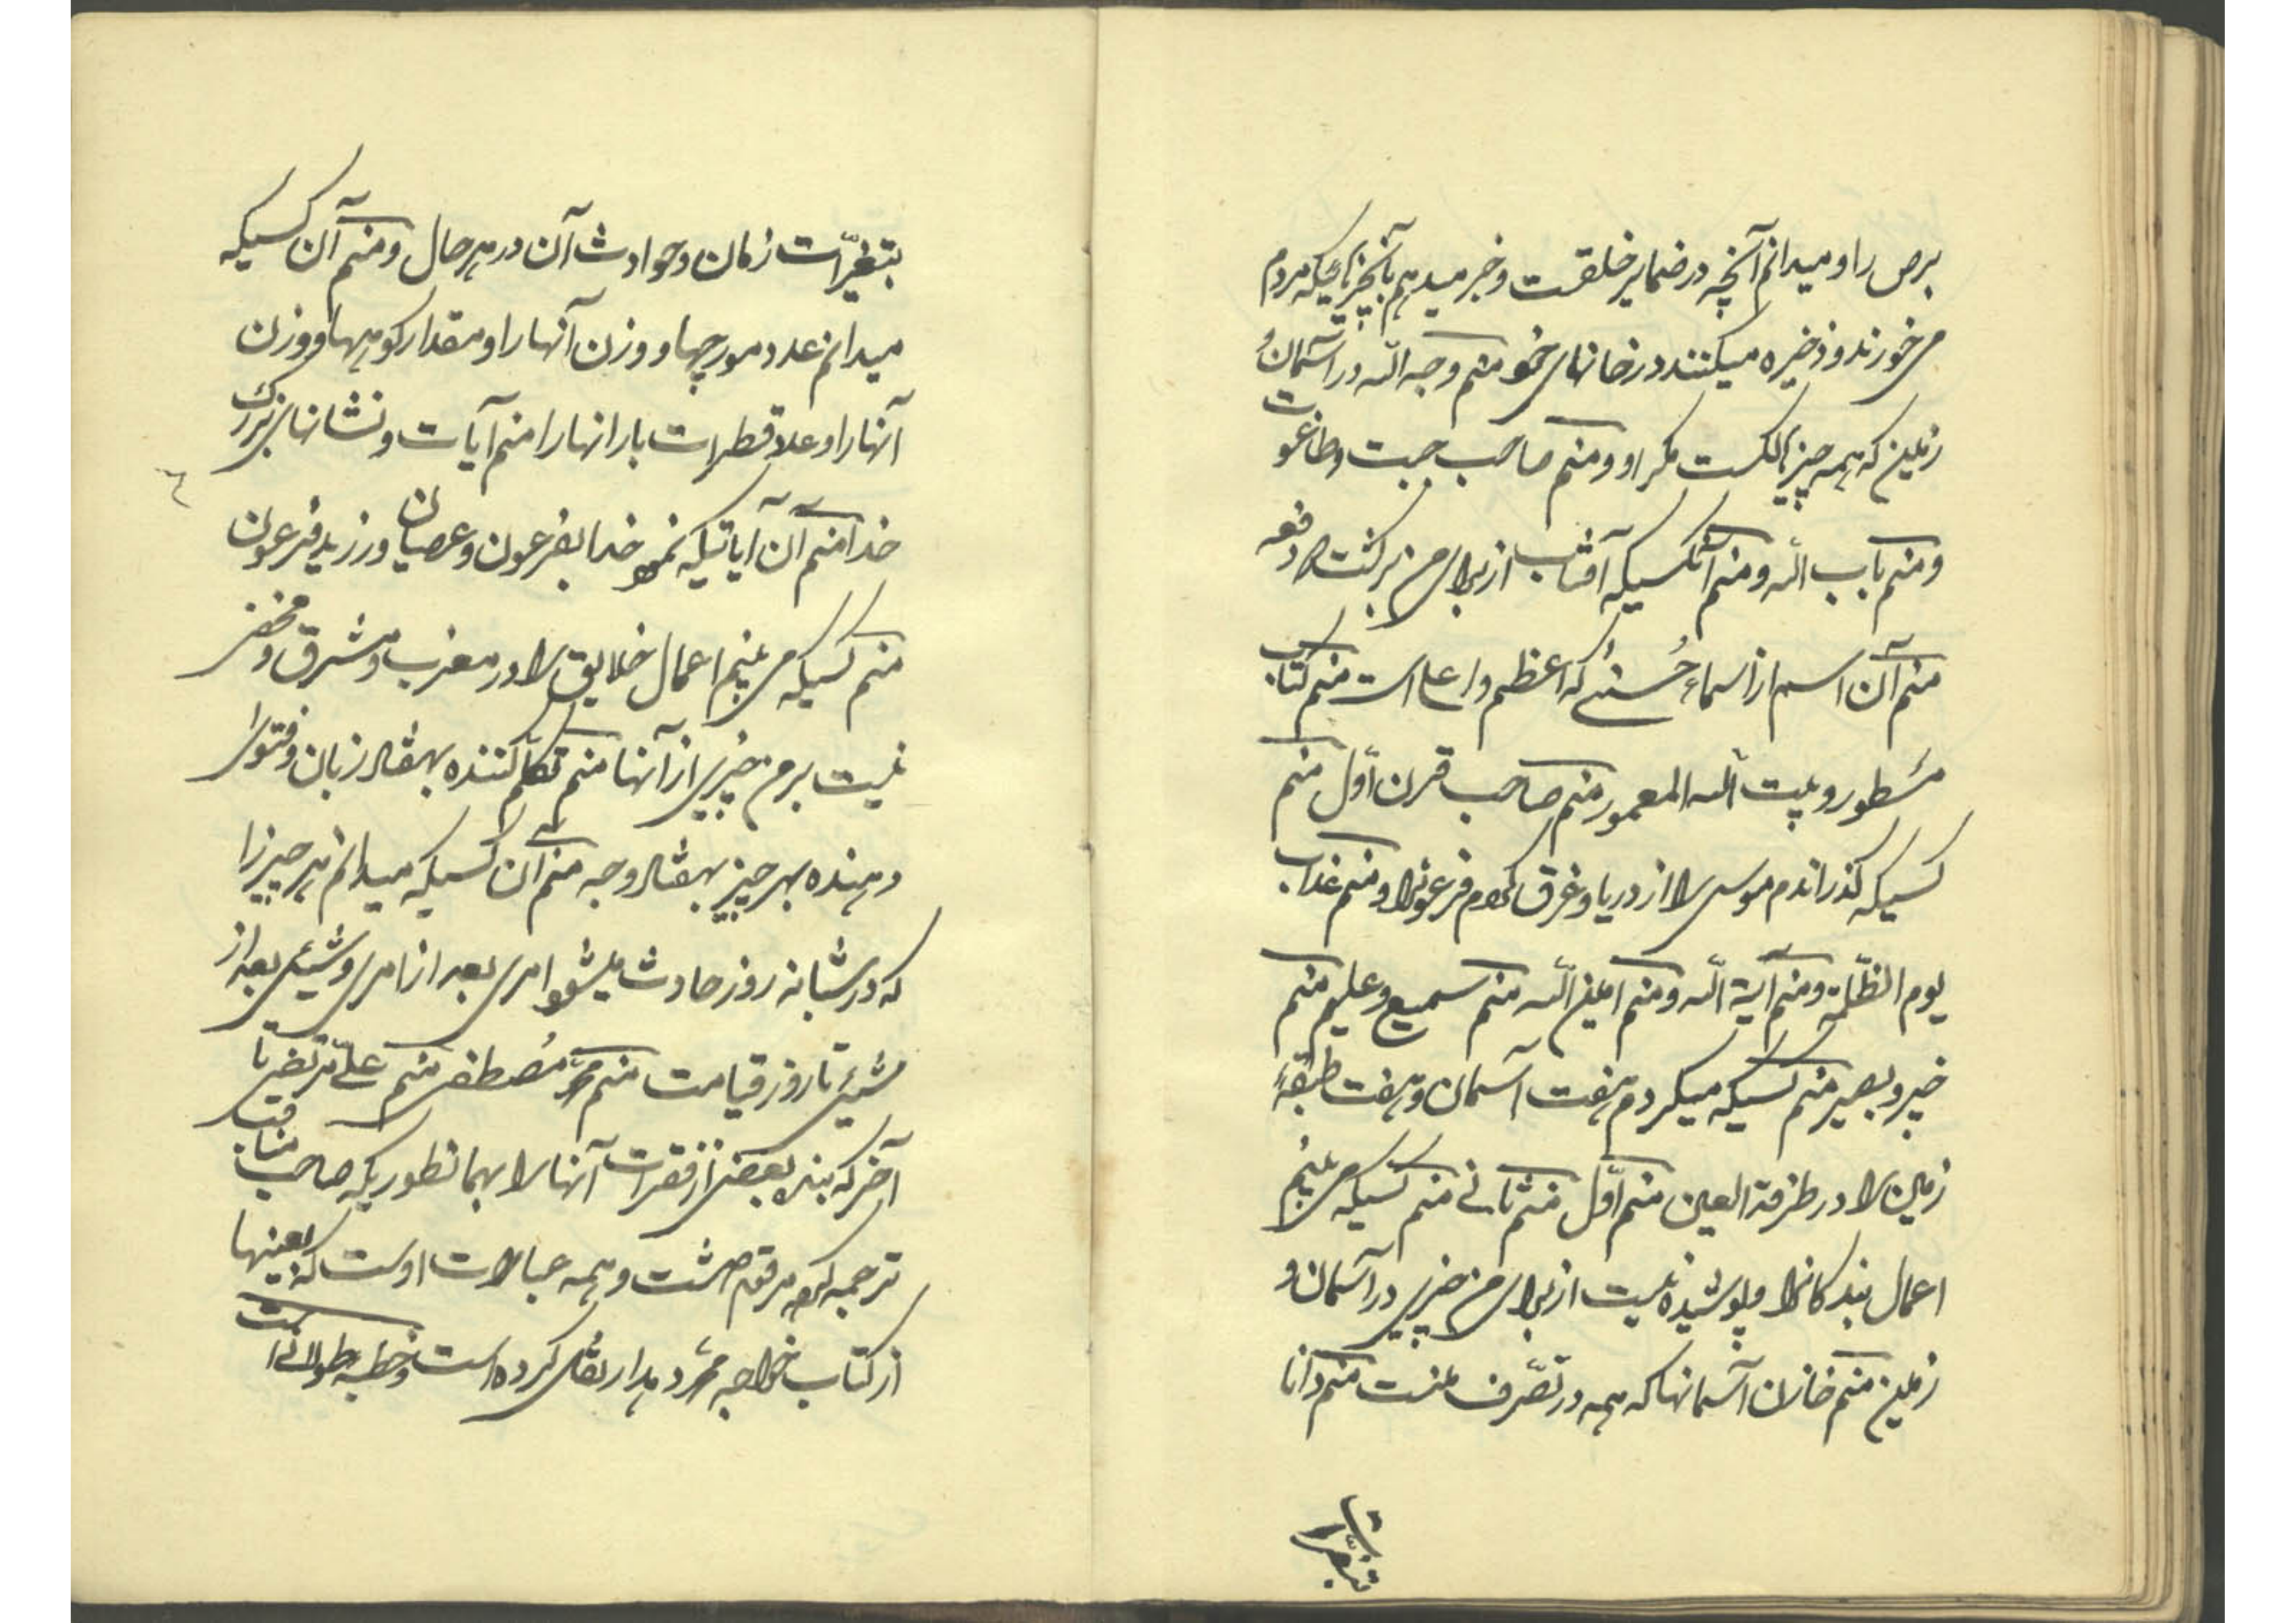 برص را و میدانم آنچه در ضمایر خلقست و خبر میدهم بآنچیزهائیکه مردم
می خورند و ذخیره میکنند در خانهای خود منم وجه الله در آسمان و
زمین که همه چیز هالکست مگر او و منم صاحب جبت و طاغوت
و منم باب الله و منم آنکسیکه آفتاب از برای من برگشت دو دفعه
منم آن اسم از اسماء حُسنی که اعظم و اعلی است منم کتاب
مسطور و بیت الله المعمور منم صاحب قرن اوّل منم
کسیکه گذراندم موسی را از دریا و غرق کردم فرعونرا و منم عذاب
یوم الظّلمة و منم آیة الله و منم امین الله منم سمیع و علیم منم
خبیر و بصیر منم کسیکه میگردم هفت آسمان و هفت طبقهٔ
زمین را در طرفة العین منم اوّل منم ثانی منم کسیکه می بینم
اعمال بندکانرا و پوشیده نیست از برای من چیزی در آسمان و
زمین منم خازن آسمانها که همه در تصّرف منست منم دانا
بتغیّرات
بتغیّرات زمان و حوادث آن در هر حال و منم آن کسیکه
میدانم عدد مورچها و وزن آنها را و مقدار کوهها و وزن
آنها را و عدد قطرات بارانها را منم آیات و نشانهای بزرک
خدا منم آن آیاتیکه نمود خدا بفرعون و عصیان ورزید فرعون
منم کسیکه می بینم اعمال خلایق را در مغرب و مشرق و مخفی
نیست بر من چیزی از آنها منم تکلّم کننده بهفتاد زبان و فتوی
دهنده بهر چیز بهفتاد وجه منم آن کسیکه میدانم هر چیز را
که در شبانه روز حادث میشود امری بعد از امری و شیئی بعد از
شیئی تا روز قیامت منم محمّد مُصطفی منم علیّ مرتضی تا
آخر که بنده بعضی از فقرات آنها را بهمانطوریکه صاحب مناقب
ترجمه کرده مرقوم داشت و همه عبارات اوست که بعینها
از کتاب خواجه محمّد دهدار نقل کرده است و خطبه طولانی است